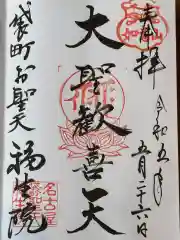 奉拝
令和五年
五月二十六日
大聖歓喜天
袋町お聖天
福生院
名古屋